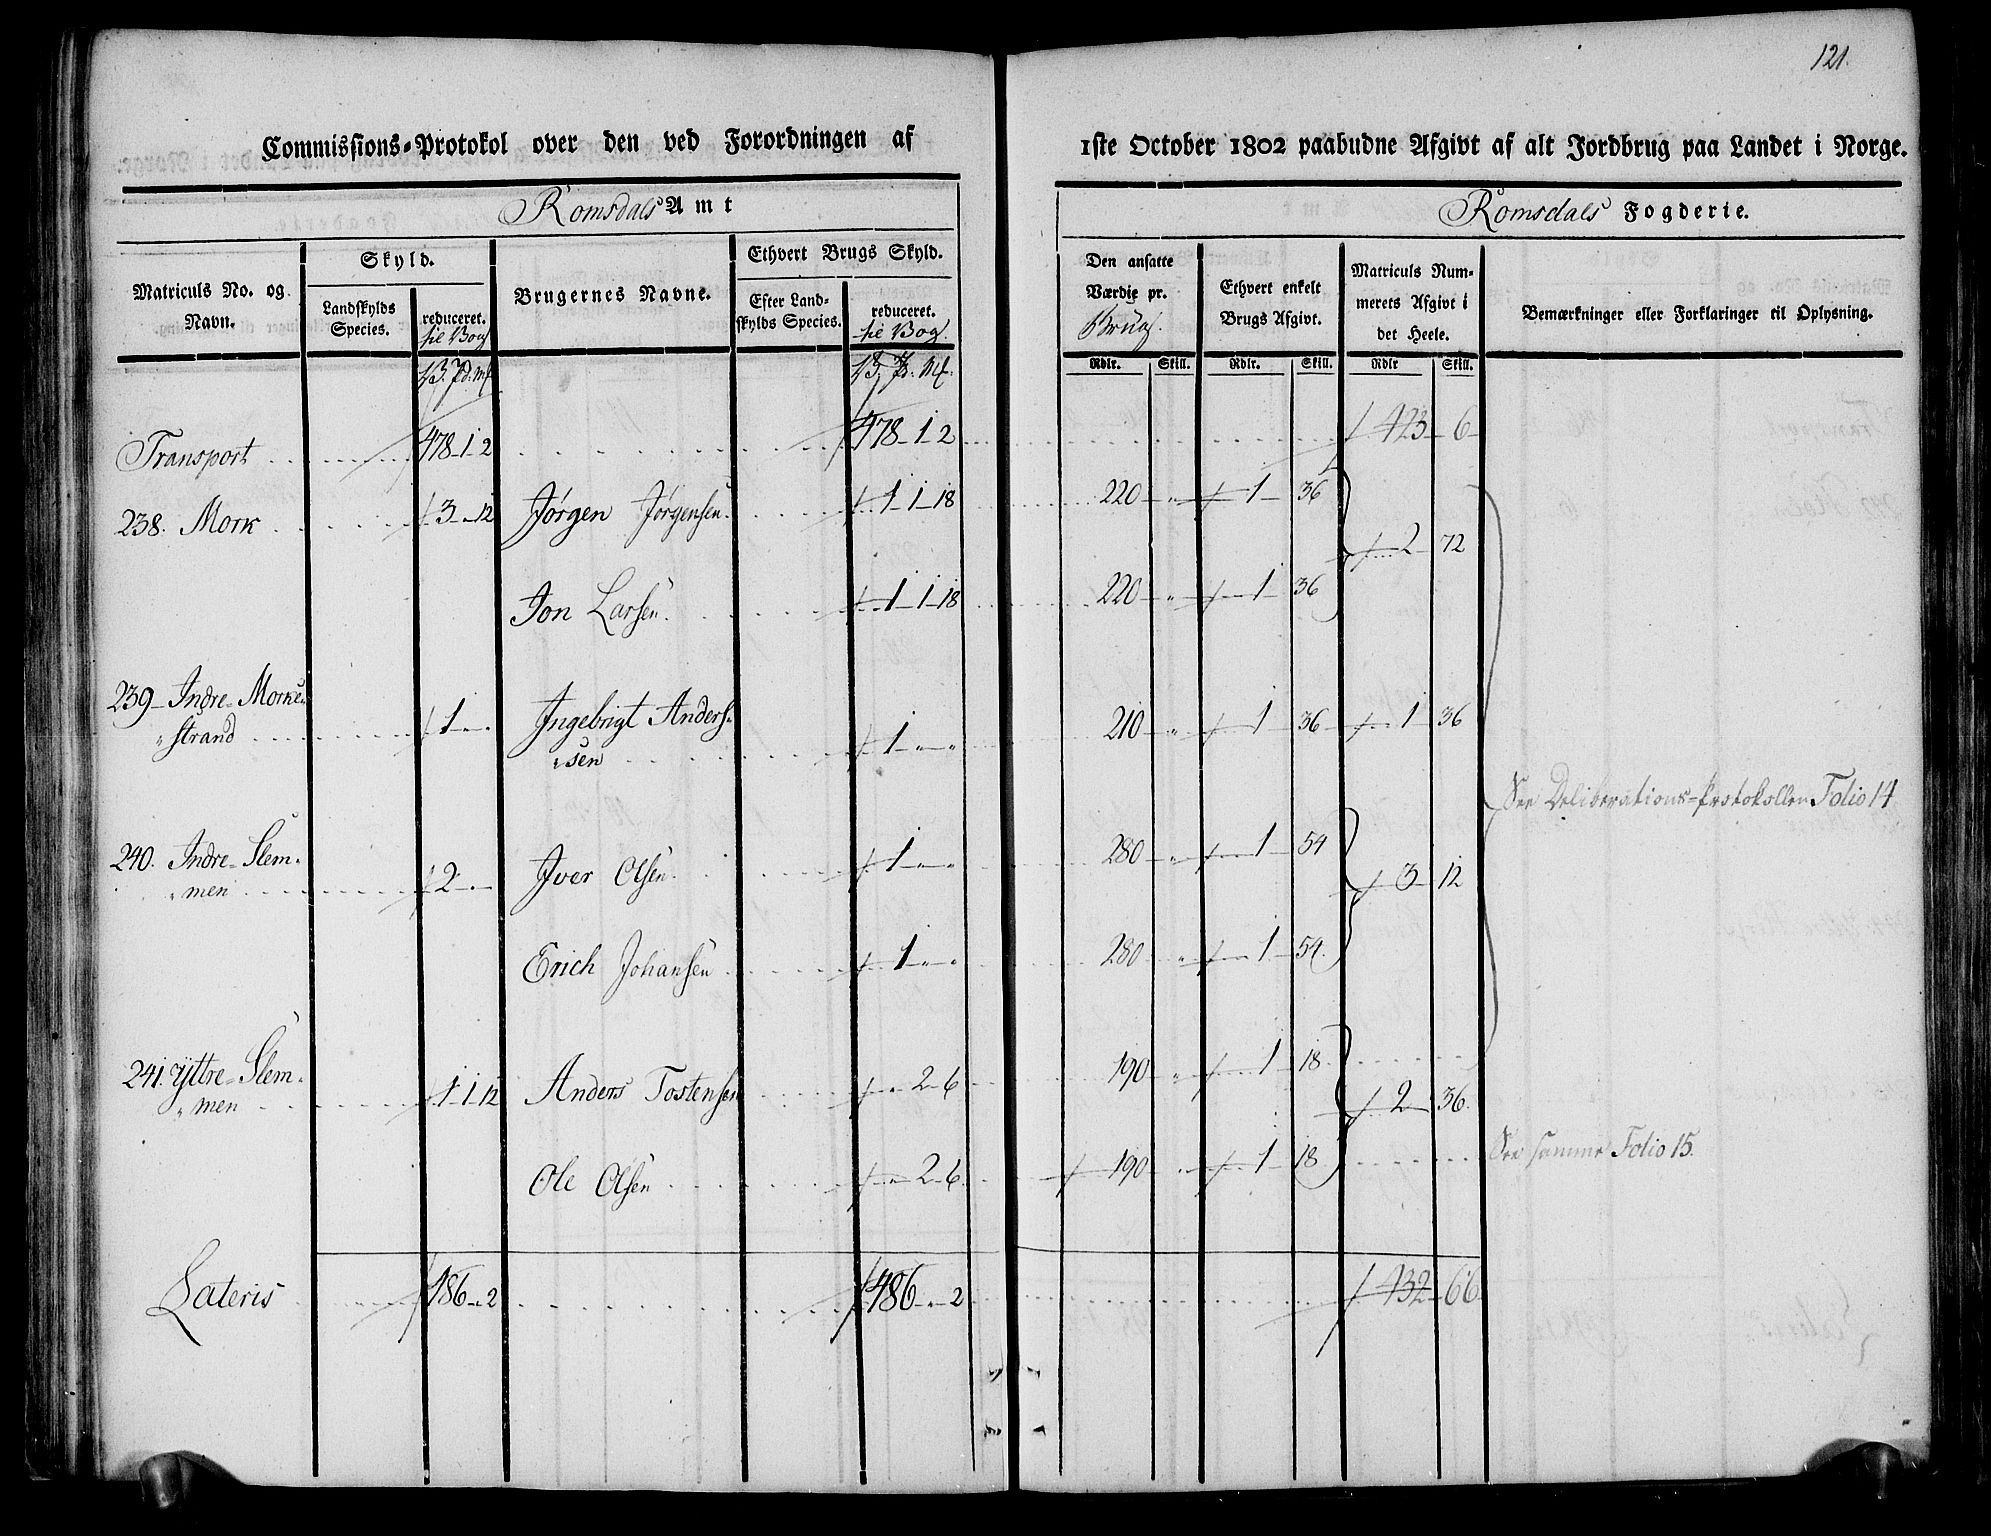 121.
Commissions-Protokol over den ved Forordningen af
1ste October 1802 paabudne Afgivt af alt Jordbrug paa Landet i Norge.
Romsdals Amt
Romsdals Fogderie.
Matriculs No. og Navn.
Skyld.
Landskylds Species.
reduceret. til Bog
Brugernes Navne.
Ethvert Brugs Skyld.
Efter Landskylds Species.
reduceret. til Bog.
Den ansatte Værdie pr. Brug.
Ethvert enkelt Brugs Afgivt.
Matriculs Nummerets Afgivt i det Heele.
Bemærkninger eller Forklaringer til Oplysning.
Rdlr. Skill. Rdlr. Skill. Rdlr Skill.
Transport 478-1-2 478-1-2 423-6-
238. Mork 3-"-12 Jørgen Jørgensen. 1-1-18 220-" 1-36
2-72
Jon Larsen. 1-1-18 220-" 1-36
239-Indre-Morke-
"strand 1-"- Ingebrigt Anders-
"sen 1-"-" 210-" 1-36 1-36
See Deliberations-Protokollen Folio 14
240. Indre-Slem-
"men 2-"- Iver Olsen. 1-"-" 280-" 1-54
3-12
Erich Johansen 1-"-" 280-" 1-54.
241. Yttre-Slem-
"men 1-1-12 Anders Tostensen "-2-6 190-" 1-18
2-36.
Ole Olsen "-2-6 190-" 1-18
See samme Folio 15.
Lateris 486-"-2 486-"-2 432-66